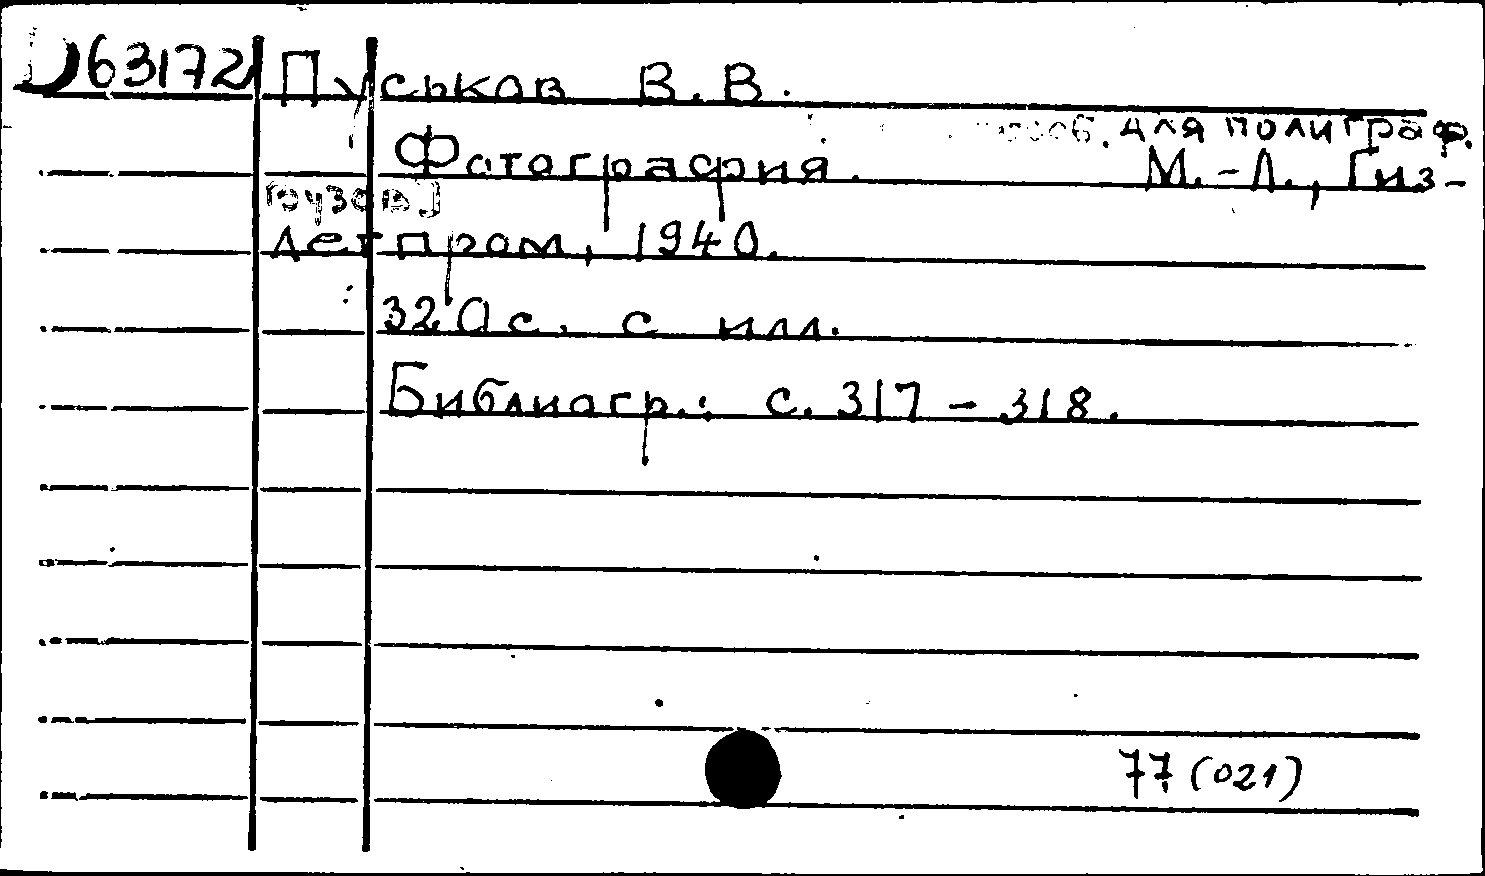 D63172 Пуськов В. В.
Фотография. пособ. для полиграф. вузов] М.-Л., Гиз-
легпром, 1940.
320 с. с илл.
Библиогр.: с. 317 - 318.
77(021)